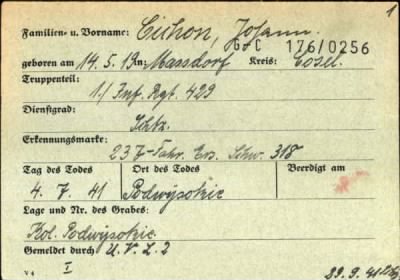 1
Familien- u. Vorname: Cichon, Johann.
G+C 176/0256
geboren am 14.5.19 in: Massdorf Kreis: Cosel.
Truppenteil:
1./ Inf. Rgt. 429
Dienstgrad:
Schtz.
Erkennungsmarke:
237-Fahr. Ers. Schw. 318
Tag des Todes Ort des Todes Beerdigt am
4. 7. 41 Podwysokie
Lage und Nr. des Grabes:
Kol. Podwysokie.
Gemeldet durch: U.V.L. 2
V 4 I 29.9.41